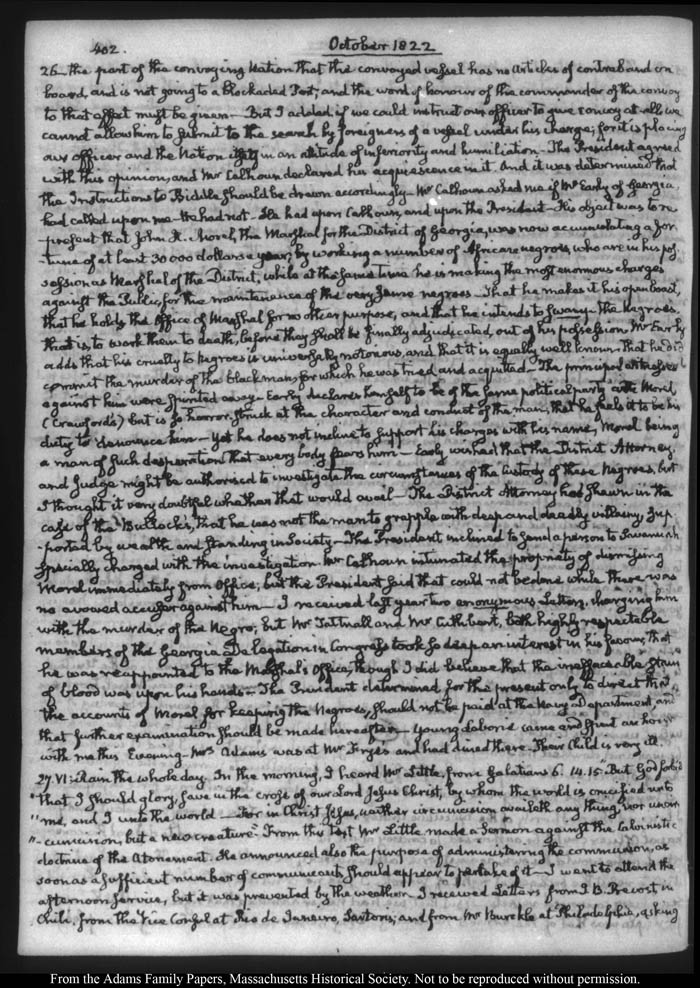 402.
October 1822
26_ the part of the convoying Nation that the convoyed vessel has no articles of contraband on
board, and is not going to a blockaded Port; and the word of honour of the commander of the convoy
to that effect must be given_ But I added if we could instruct our officer to give convoy at all we
cannot allow him to submit to the search by foreigners of a vessel under his charge; for it is placing
our officer and the Nation itself in an attitude of inferiority and humiliation_ The President agreed
with this opinion, and Mr Calhoun declared his acquiescence in it. And it was determined that
the Instructions to Biddle should be drawn accordingly_ Mr Calhoun asked me if Mr Early of Georgia,
had called upon me_ He had not_ He had upon Calhoun, and upon the President_ His object was to re
-present that John H. Morel, the Marshal for the District of Georgia, was now accumulating a for
-tune of at least 30 000 dollars a year, by working a number of African negroes, who are in his pos
session as Marshal of the District, while at the same time he is making the most enormous charges
against the Public, for the maintenance of the very same negroes_ That he makes it his open boast,
that he holds the Office of Marshal for no other purpose, and that he intends to swamp the Negroes.
that is, to work them to death, before they shall be finally adjudicated, out of his possession. Mr Early
adds that his cruelty to Negroes is universally notorious, and that it is equally well known that he did
commit the murder of the black man, for which he was tried and acquitted_ The principal witnesses
against him were spirited away_ Early declares himself to be of the same political party with Morel
(Crawford's) but is so horror-struck at the character and conduct of the man, that he feels it to be his
duty to denounce him_ Yet he does not incline to support his charges with his name, Morel being
a man of such desperation that every body fears him_ Early wished that the District Attorney,
and Judge might be authorised to investigate the circumstances of the custody of these Negroes, but
I thought it very doubtful whether that would avail_ The District Attorney has shewn in the
case of the Bullochs, that he was not the man to grapple with deep and deadly villainy, sup
-ported by wealth and standing in Society_ The President inclined to send a person to Savannah
specially charged with the investigation. Mr Calhoun intimated the propriety of dismissing
Morel immediately from Office; but the President said that could not be done while there was
no avowed accuser against him_ I received last year two anonymous Letters, charging him
with the murder of the Negro, but Mr Tattnall and Mr Cuthbert, both highly respectable
members of the Georgia Delegation in Congress took so deep an interest in his favour, that
he was reappointed to the Marshal's Office, though I did believe that the ineffaceable stain
of blood was upon his hands_ The President determined for the present only to direct that
the accounts of Morel for keeping the Negroes, should not be paid at the Navy Department, and
that further examination should be made hereafter_ Young deBoris came and spent an hour
with me this Evening_ Mrs Adams was at Mr Frye's and had dined there. Their Child is very ill.
27. VI: Rain the whole day. In the morning, I heard Mr Little, from Galatians 6. 14. 15. "But God forbid
"that I should glory, save in the cross of our Lord Jesus Christ, by whom the world is crucified unto
"me, and I unto the world_ For in Christ Jesus, neither circumcision availeth any thing, nor uncir
"-cumcision, but a new creature." From this text Mr Little made a Sermon against the Calvinistic
doctrine of the Atonement. He announced also the purpose of administering the communion, as
soon as a sufficient number of communicants should appear to partake of it_ I went to attend the
afternoon service, but it was prevented by the weather. I received Letters from J. B. Prevost in
Chili, from the Vice Consul at Rio de Janeiro, Sartoris; and from Mr Bureklé at Philadelphia, asking
From the Adams Family Papers, Massachusetts Historical Society. Not to be reproduced without permission.